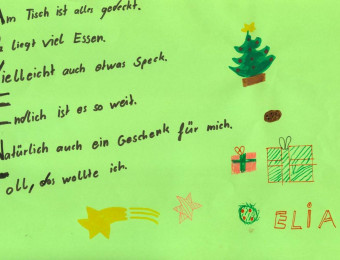 Am Tisch ist alles gedeckt.
liegt viel Essen.
Vielleicht auch etwas Speck.
Endlich ist es so weit.
Natürlich auch ein Geschenk für mich.
Toll, das wollte ich.
ELIA